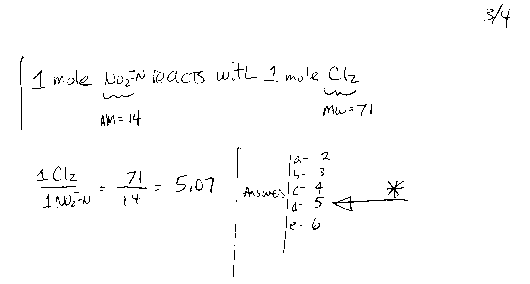 3/4
1 mole NO₂⁻-N reacts with 1 mole Cl₂
AM=14 MW=71
1 Cl₂ / 1 NO₂⁻-N = 71 / 14 = 5.07
Answer
a- 2
b- 3
c- 4
d- 5 *
e- 6